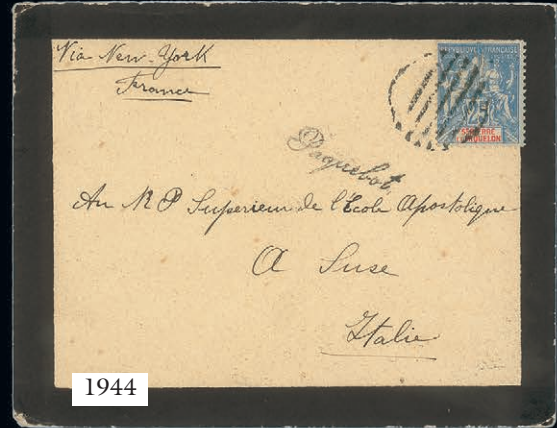 Via New-York
France
REPUBLIQUE FRANCAISE
25
ST PIERRE
MIQUELON
Paquebot.
Au R P Superieur de l'Ecole Apostolique
A Suse
Italie
1944